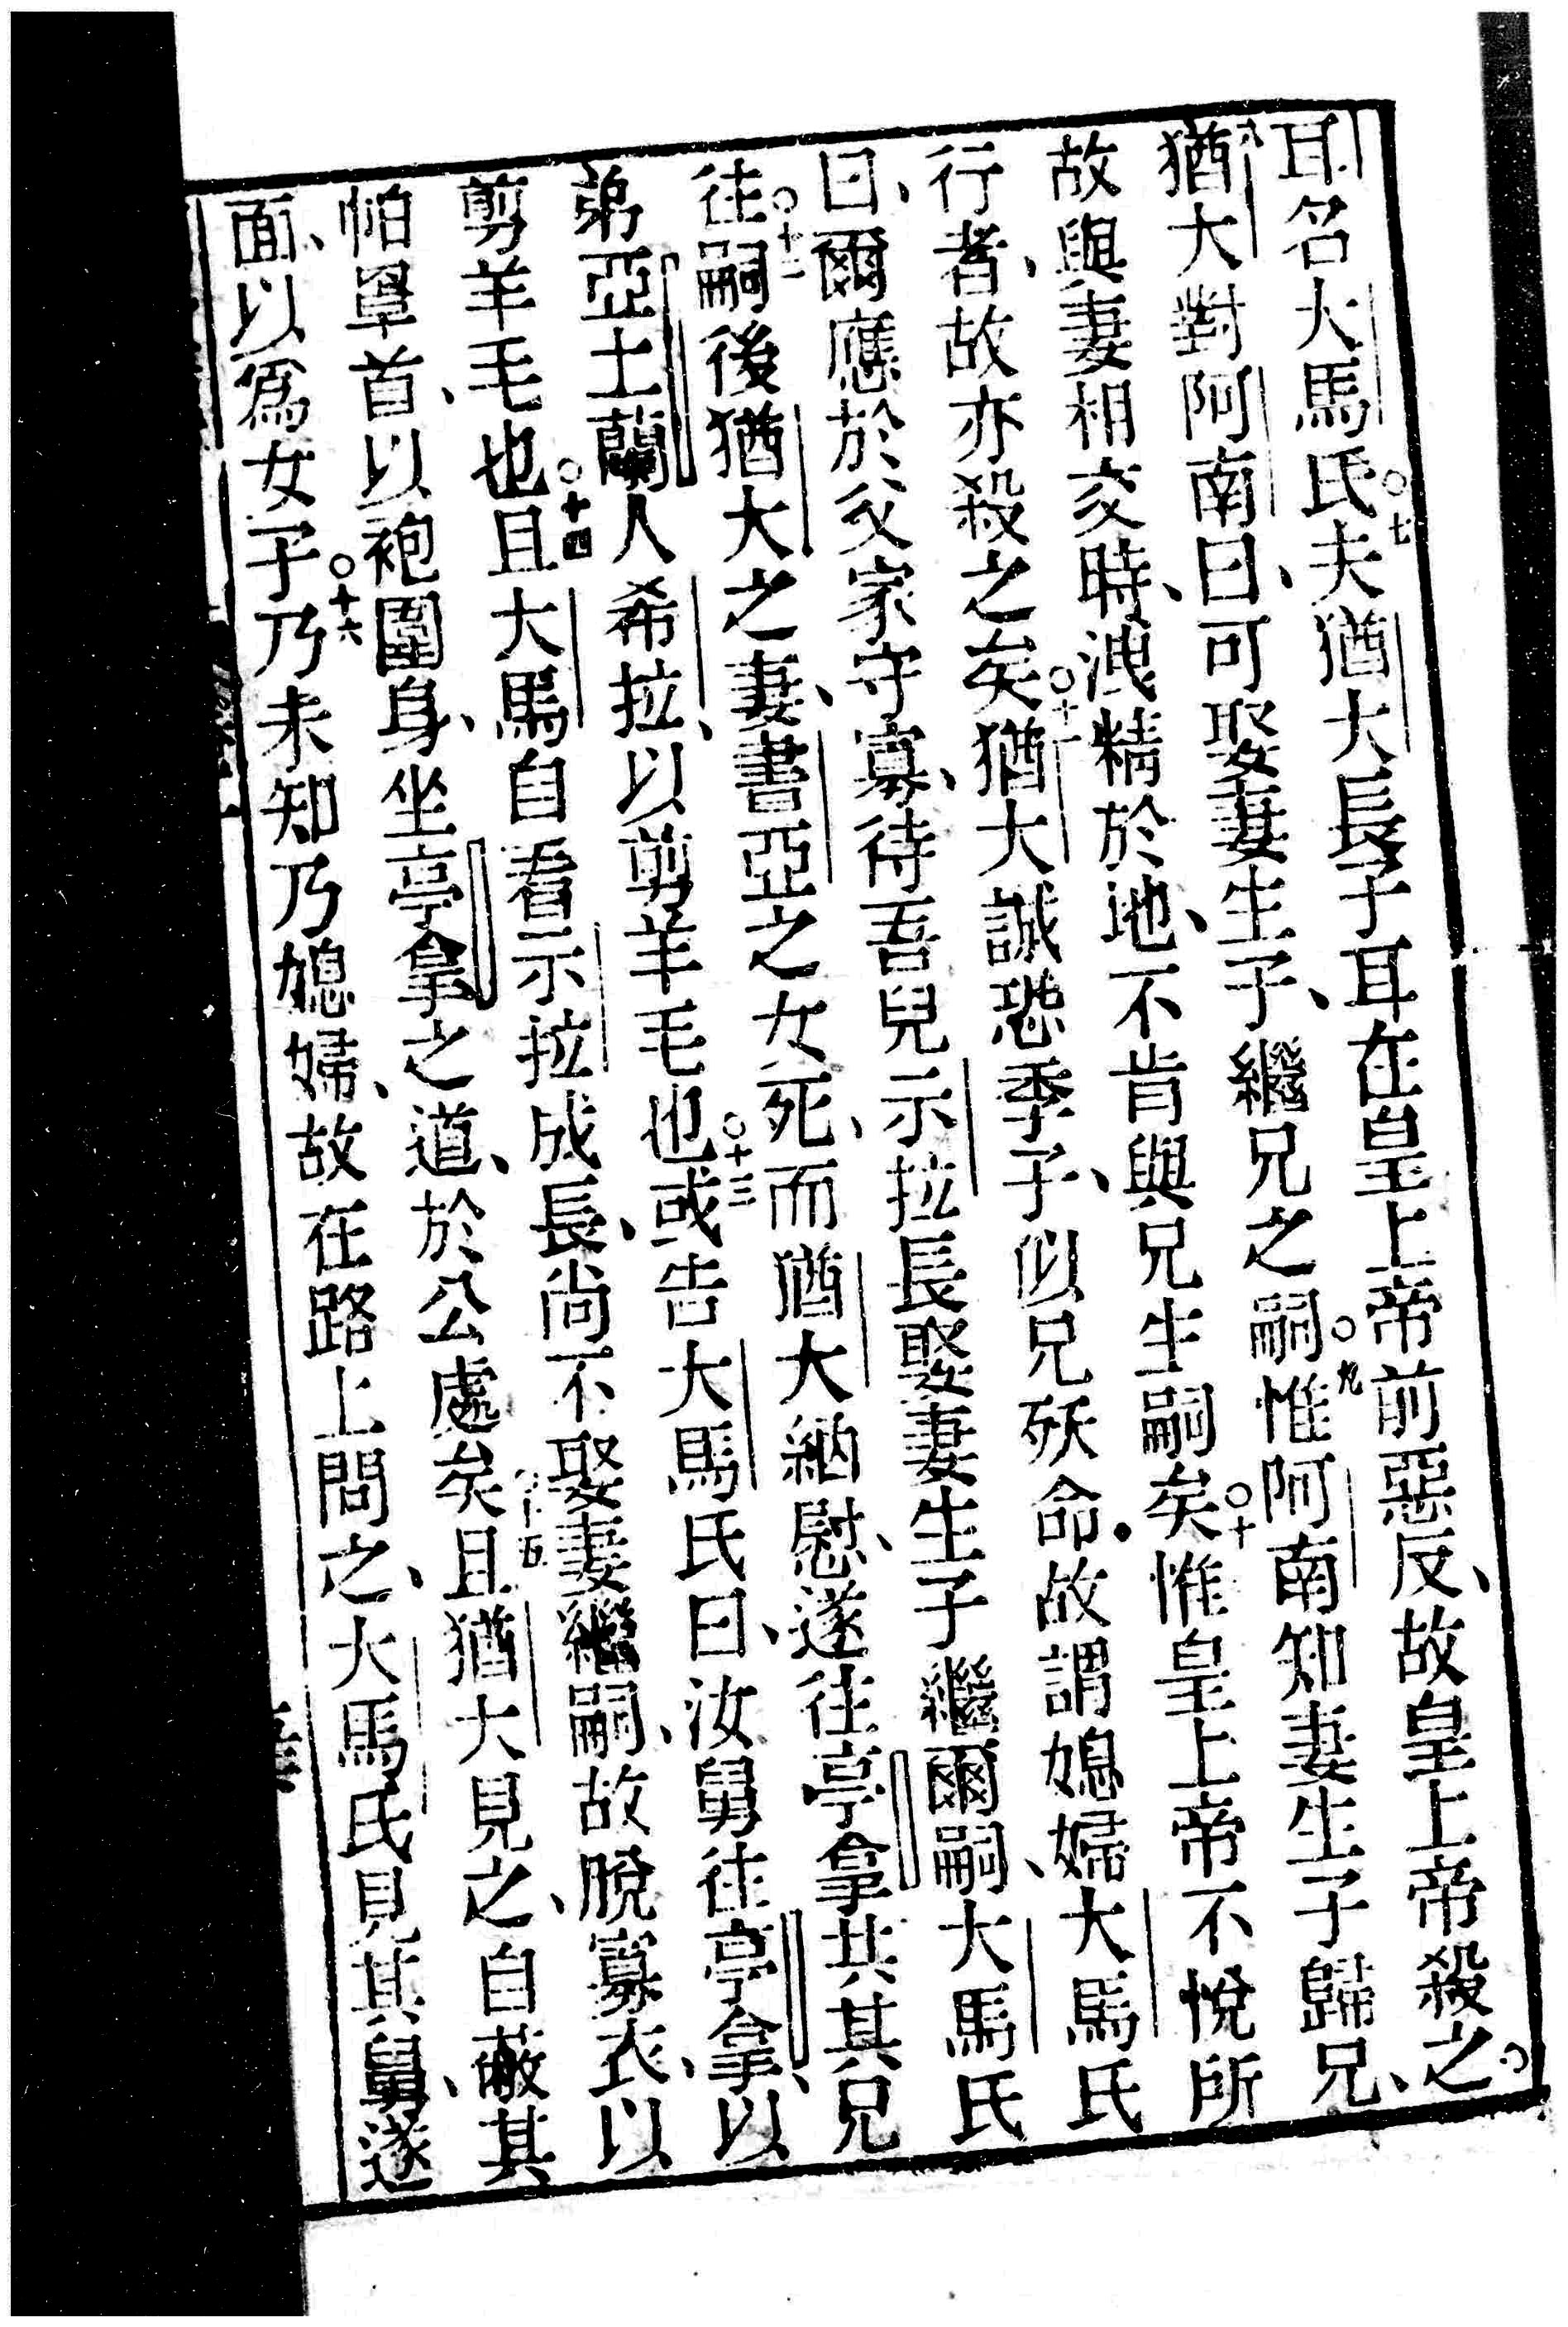 耳名大馬氏○七夫猶大長子耳在皇上帝前惡反、故皇上帝殺之○
八猶大對阿南曰、可娶妻生子、繼兄之嗣○九惟阿南知妻生子歸兄、
故與妻相交時、洩精於地、不肯與兄生嗣矣○十惟皇上帝不悅所
行者、故亦殺之矣○十一猶大誠恐季子、似兄殀命．故謂媳婦大馬氏
曰、爾應於父家守寡、待吾兒示拉長娶妻生子繼爾嗣、大馬氏
往○十二嗣後猶大之妻、書亞之女死、而猶大納慰、遂往亭拿共其兄
弟亞土蘭人希拉、以剪羊毛也○十三或告大馬氏曰、汝舅往亭拿、以
剪羊毛也○十四且大馬自看示拉成長、尚不娶妻繼嗣、故脫寡衣、以
帕罩首、以袍圍身、坐亭拿之道、於公處矣○十五且猶大見之、自蔽其
面、以為女子○十六乃未知乃媳婦、故在路上問之、大馬氏見其舅、遂